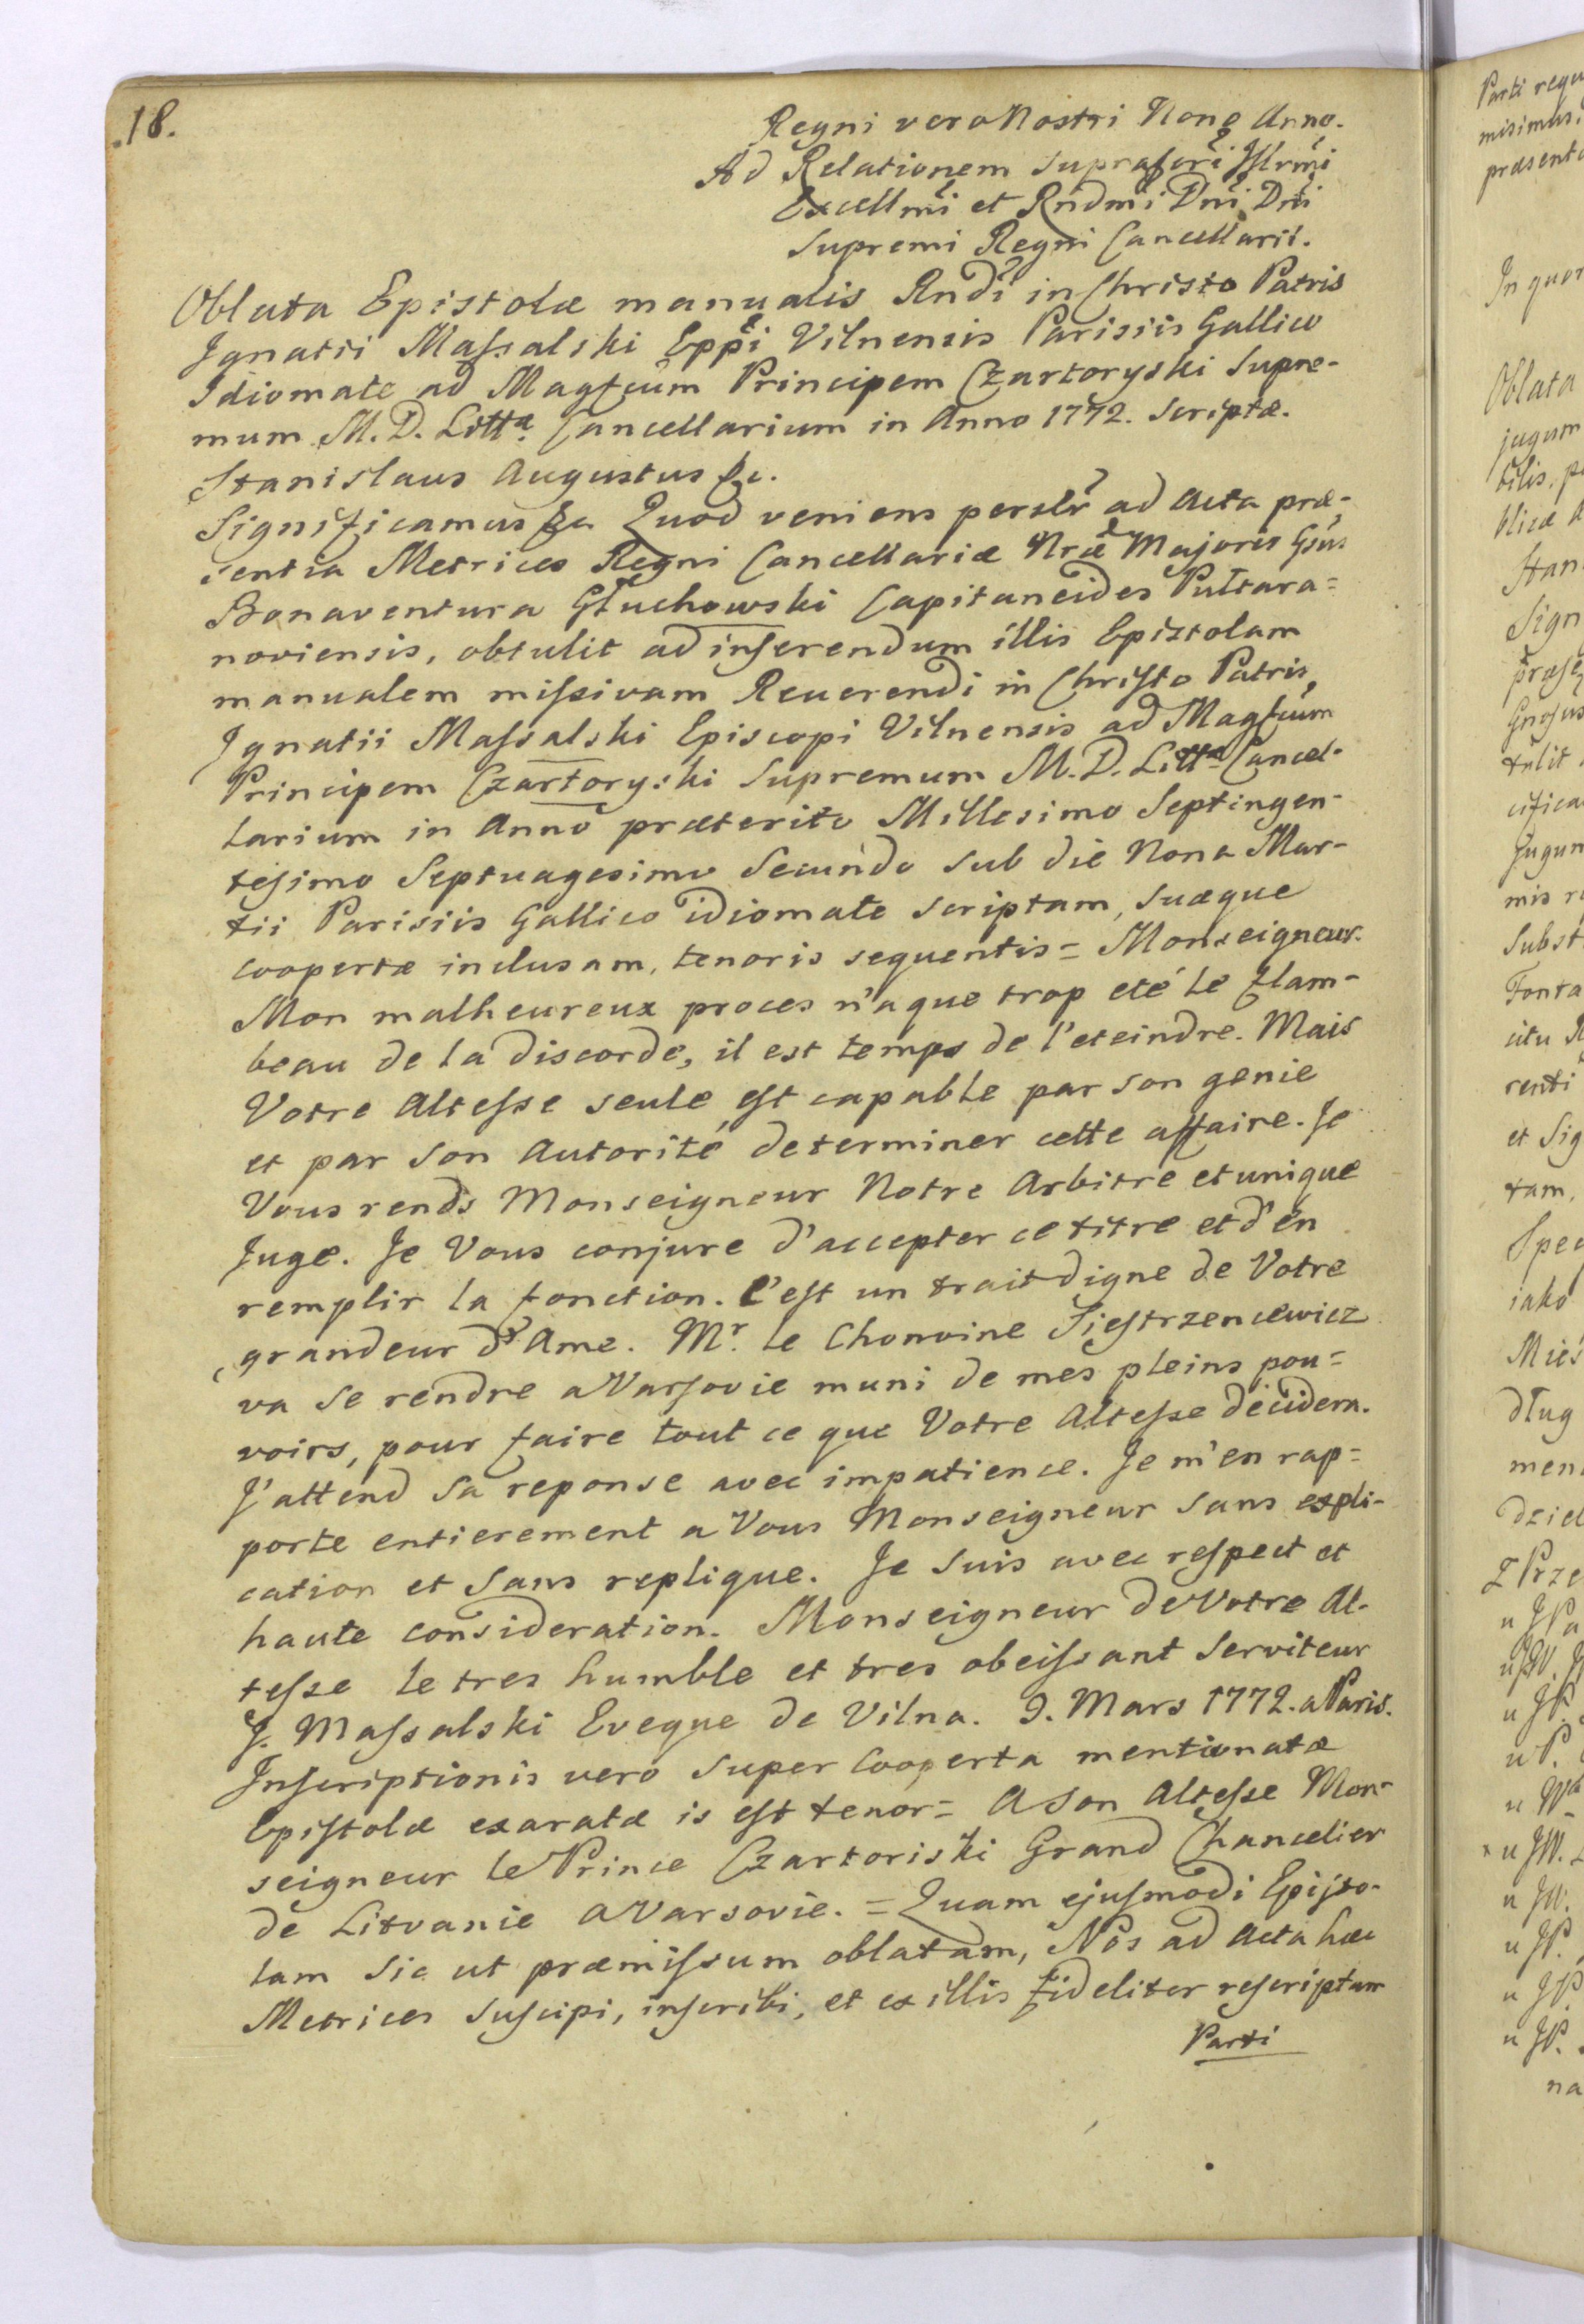 18.
Regni vero Nostri Nono Anno.
Ad Relationem supraferi Illrmi
Excellmi et Rndmi Dni Dni
Supremi Regni Cancellarii.
Oblata Epistolæ manualis Rndi in Christo Patris
Ignatii Maſsalski Eppi Vilnensis Parisiis Gallico
Idiomate ad Magfcum Principem Czartoryski Supre-
mum M. D. Littæ Cancellarium in Anno 1772. scriptæ.
Stanislaus Augustus &c.
Significamus &c Quod veniens persلr ad Acta præ-
sentia Metrices Regni Cancellariæ Nræ Majoris Gsus
Bonaventura Głuchowski Capitaneides Pultara=
noviensis, obtulit ad inſerendum illis Epistolam
manualem miſsivam Reverendi in Chriſto Patris
Ignatii Maſsalski Episcopi Vilnensis ad Magfcum
Principem Czartoryski Supremum M. D. Littæ Cancel-
larium in Anno præterito Millesimo Septingen-
teſimo Septuagesimo Secundo sub die Nona Mar-
tii Parisiis Gallico idiomate scriptam, suæque
coopertæ inclusam, tenoris sequentis = Monseigneur.
Mon malheureux proces n'a que trop eté le flam-
beau de la discorde, il est temps de l'eteindre. Mais
Votre Alteſse seule eſt capable par son genie
et par son Autorité determiner cette affaire. Je
Vous rends Monseigneur Notre Arbitre et unique
Juge. Je Vous conjure d'accepter ce titre et d'en
remplir la fonction. C'eſt un trait digne de Votre
grandeur d'Ame. Mr. le Chonoine Sieſtrzencewicz
va se rendre a Varſovie muni de mes pleins pou=
voirs, pour faire tout ce que Votre Alteſse decidera.
J'attend sa reponse avec impatience. Je m'en rap=
porte entierement a Vous Monseigneur sans expli-
cation et sans replique. Je suis avec reſpect et
haute consideration. Monseigneur de Votre Al-
teſse le tres humble et tres obeiſsant Serviteur
J. Maſsalski Eveque de Vilna. 9. Mars 1772. a Paris.
Inſcriptionis vero super Cooperta mentionatæ
Epiſtolæ exaratæ is eſt tenor = A Son Alteſse Mon-
seigneur le Prince Czartoriski Grand Chancelier
de Litvanie a Varsovie. = Quam ejuſmodi Epiſto-
lam sic ut præmiſsum oblatam, Nos ad Acta hæc
Metrices suſcipi, inſcribi, et ex illis fideliter reſcriptam
Parti